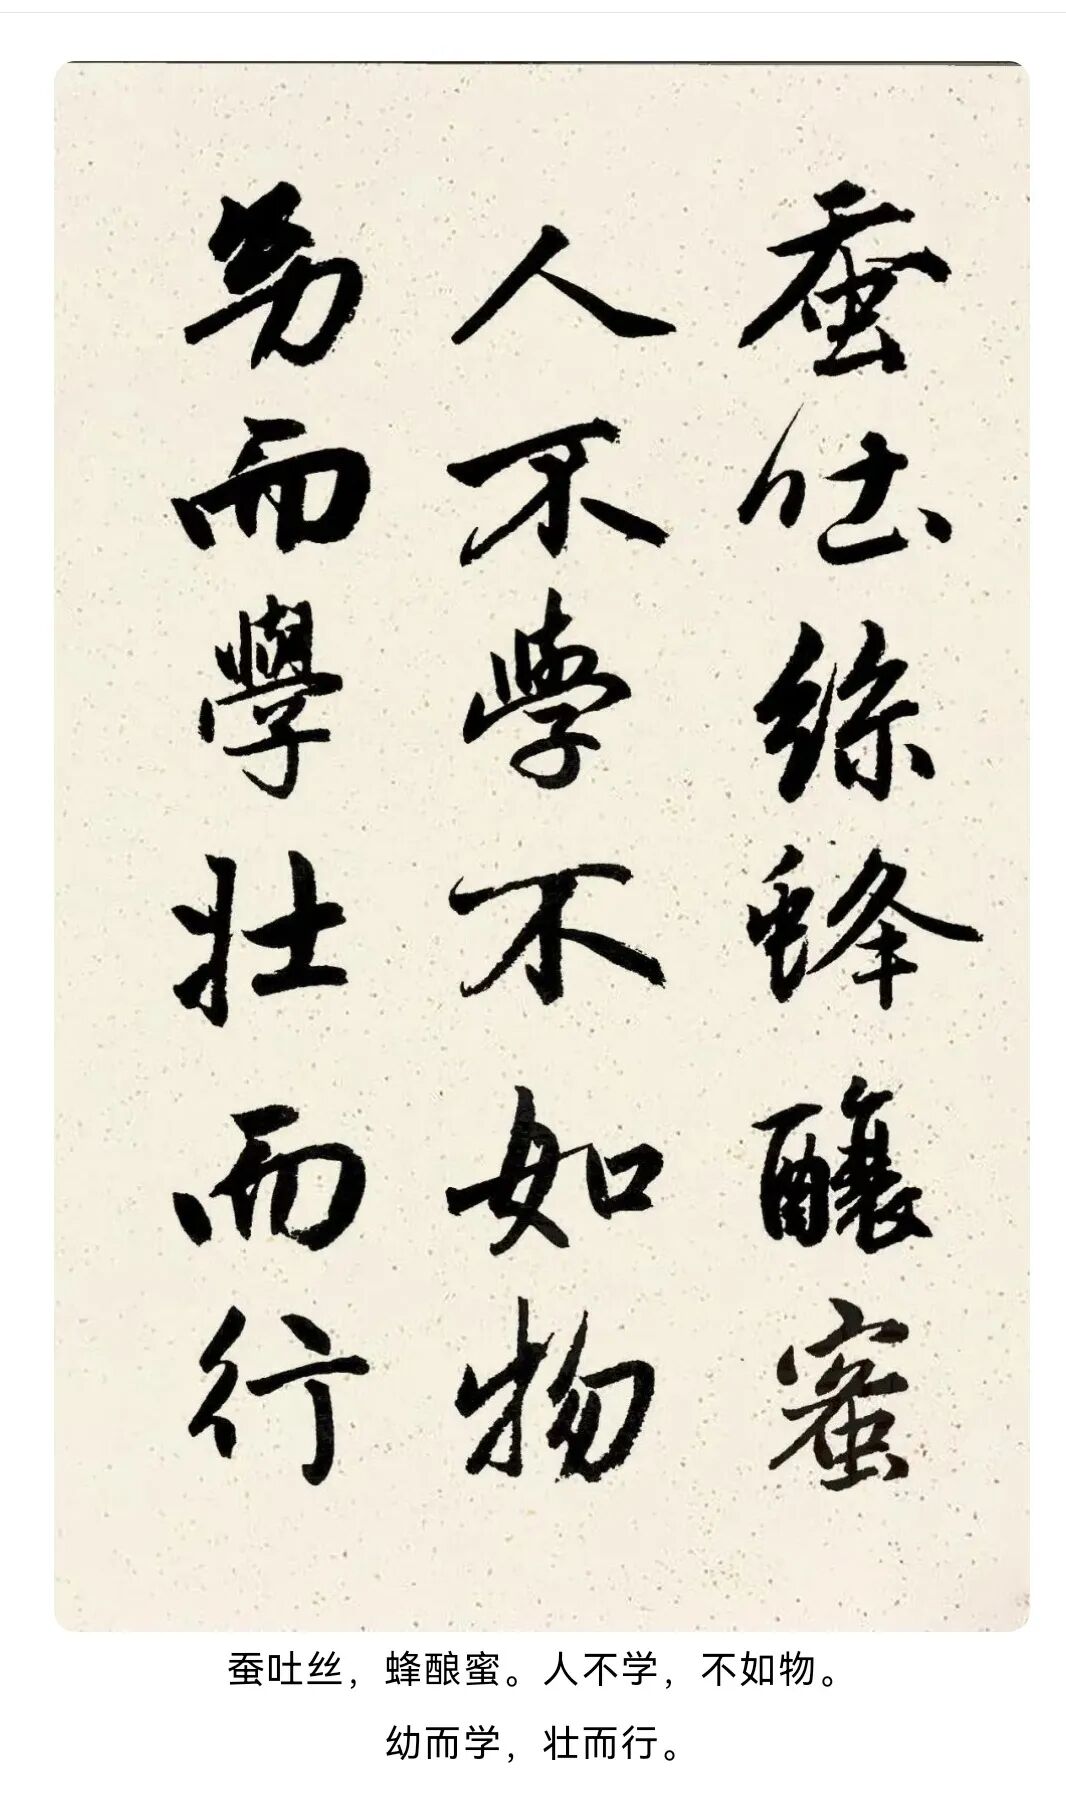 蚕吐絲蜂釀蜜
人不學不如物
幼而學壯而行
蚕吐丝，蜂酿蜜。人不学，不如物。
幼而学，壮而行。